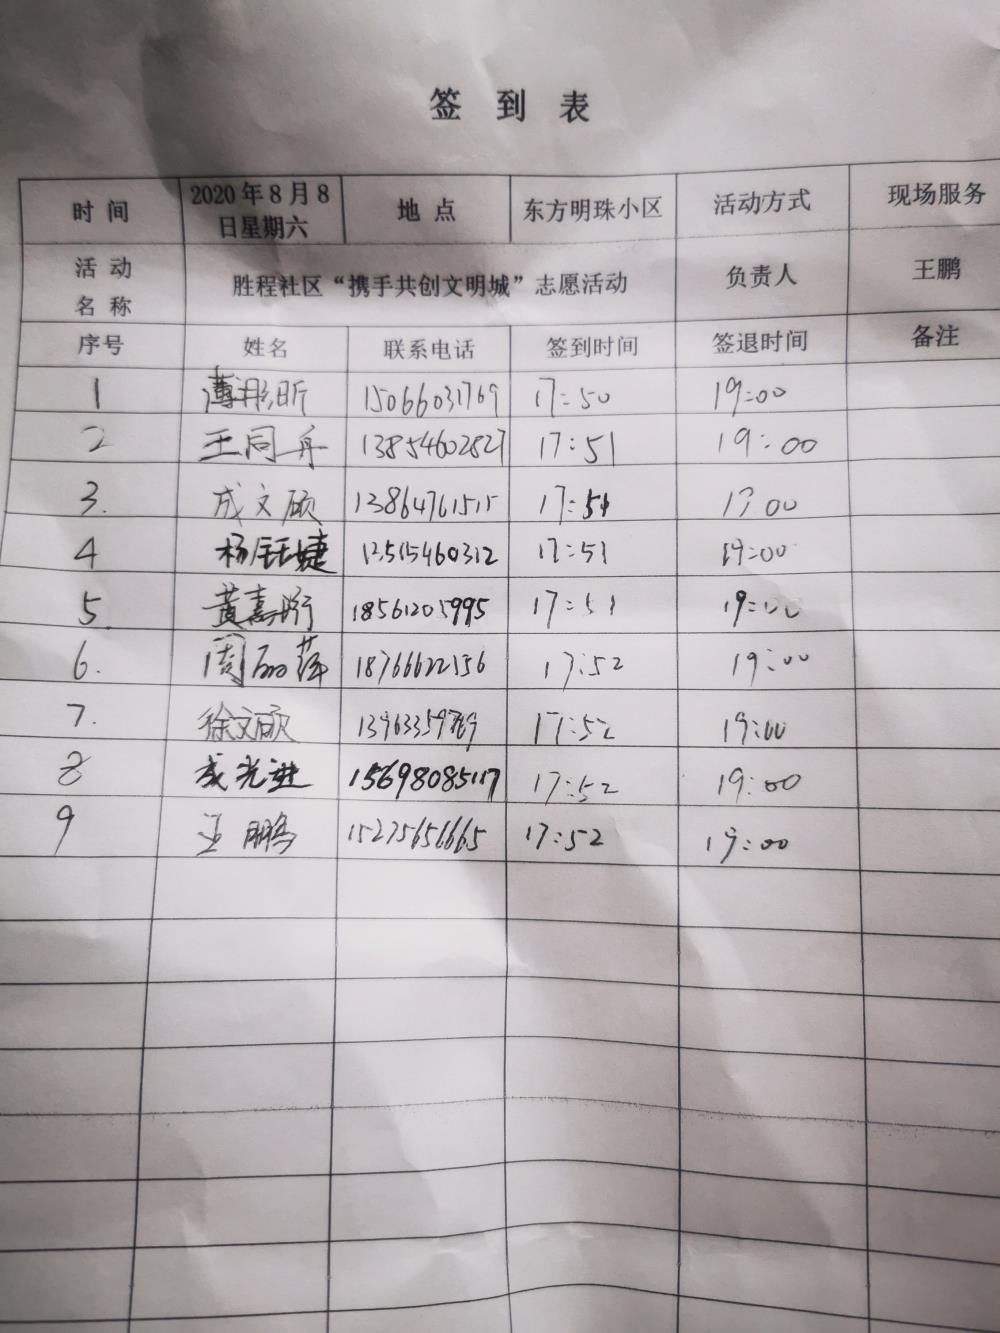 签 到 表
时 间 2020年8月8日星期六 地 点 东方明珠小区 活动方式 现场服务
活 动 名 称 胜程社区“携手共创文明城”志愿活动 负责人 王鹏
序号 姓名 联系电话 签到时间 签退时间 备注
1 薄彤昕 15066031769 17:50 19:00
2 王同舟 13854602827 17:51 19:00
3. 成文硕 13864761515 17:51 19:00
4 杨钰婕 12515460312 17:51 19:00
5. 黄嘉昕 18561205995 17:51 19:00
6. 周丽萍 18766622156 17:52 19:00
7. 徐文硕 17:52 19:00
8 成光进 15698085117 17:52 19:00
9 王鹏 15275656665 17:52 19:00